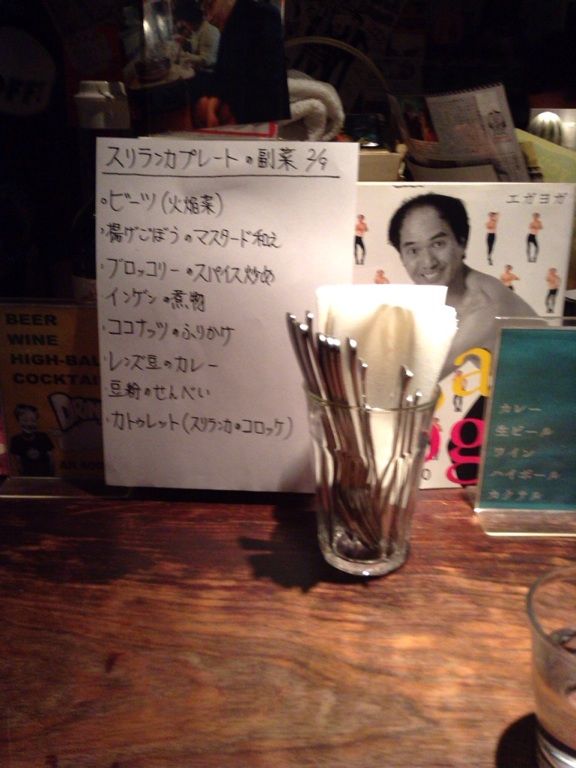 スリランカプレートの副菜 2/9
・ビーツ(火焔菜)
・揚げごぼうのマスタード和え
・ブロッコリーのスパイス炒め
インゲンの煮物
・ココナッツのふりかけ
・レンズ豆のカレー
・豆粉のせんべい
・カトゥレット(スリランカのコロッケ)
エガヨガ
BEER
WINE
HIGH-BAL
COCKTA
カレー
生ビール
ワイン
ハイボール
カクテル